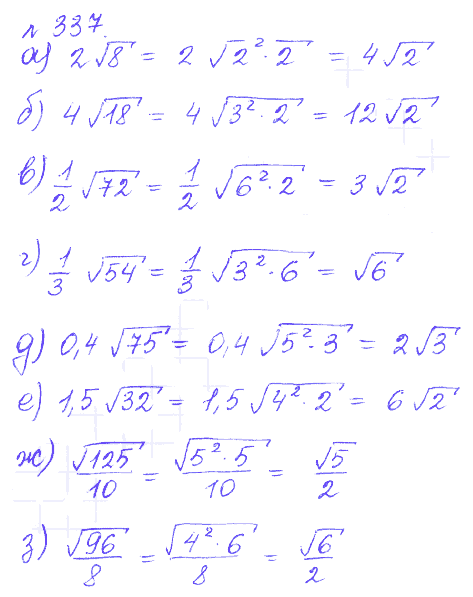 № 337.
а) 2√8 = 2√(2²·2) = 4√2
б) 4√18 = 4√(3²·2) = 12√2
в) 1/2 √72 = 1/2 √(6²·2) = 3√2
г) 1/3 √54 = 1/3 √(3²·6) = √6
д) 0,4√75 = 0,4√(5²·3) = 2√3
е) 1,5√32 = 1,5√(4²·2) = 6√2
ж) √125/10 = √(5²·5)/10 = √5/2
з) √96/8 = √(4²·6)/8 = √6/2